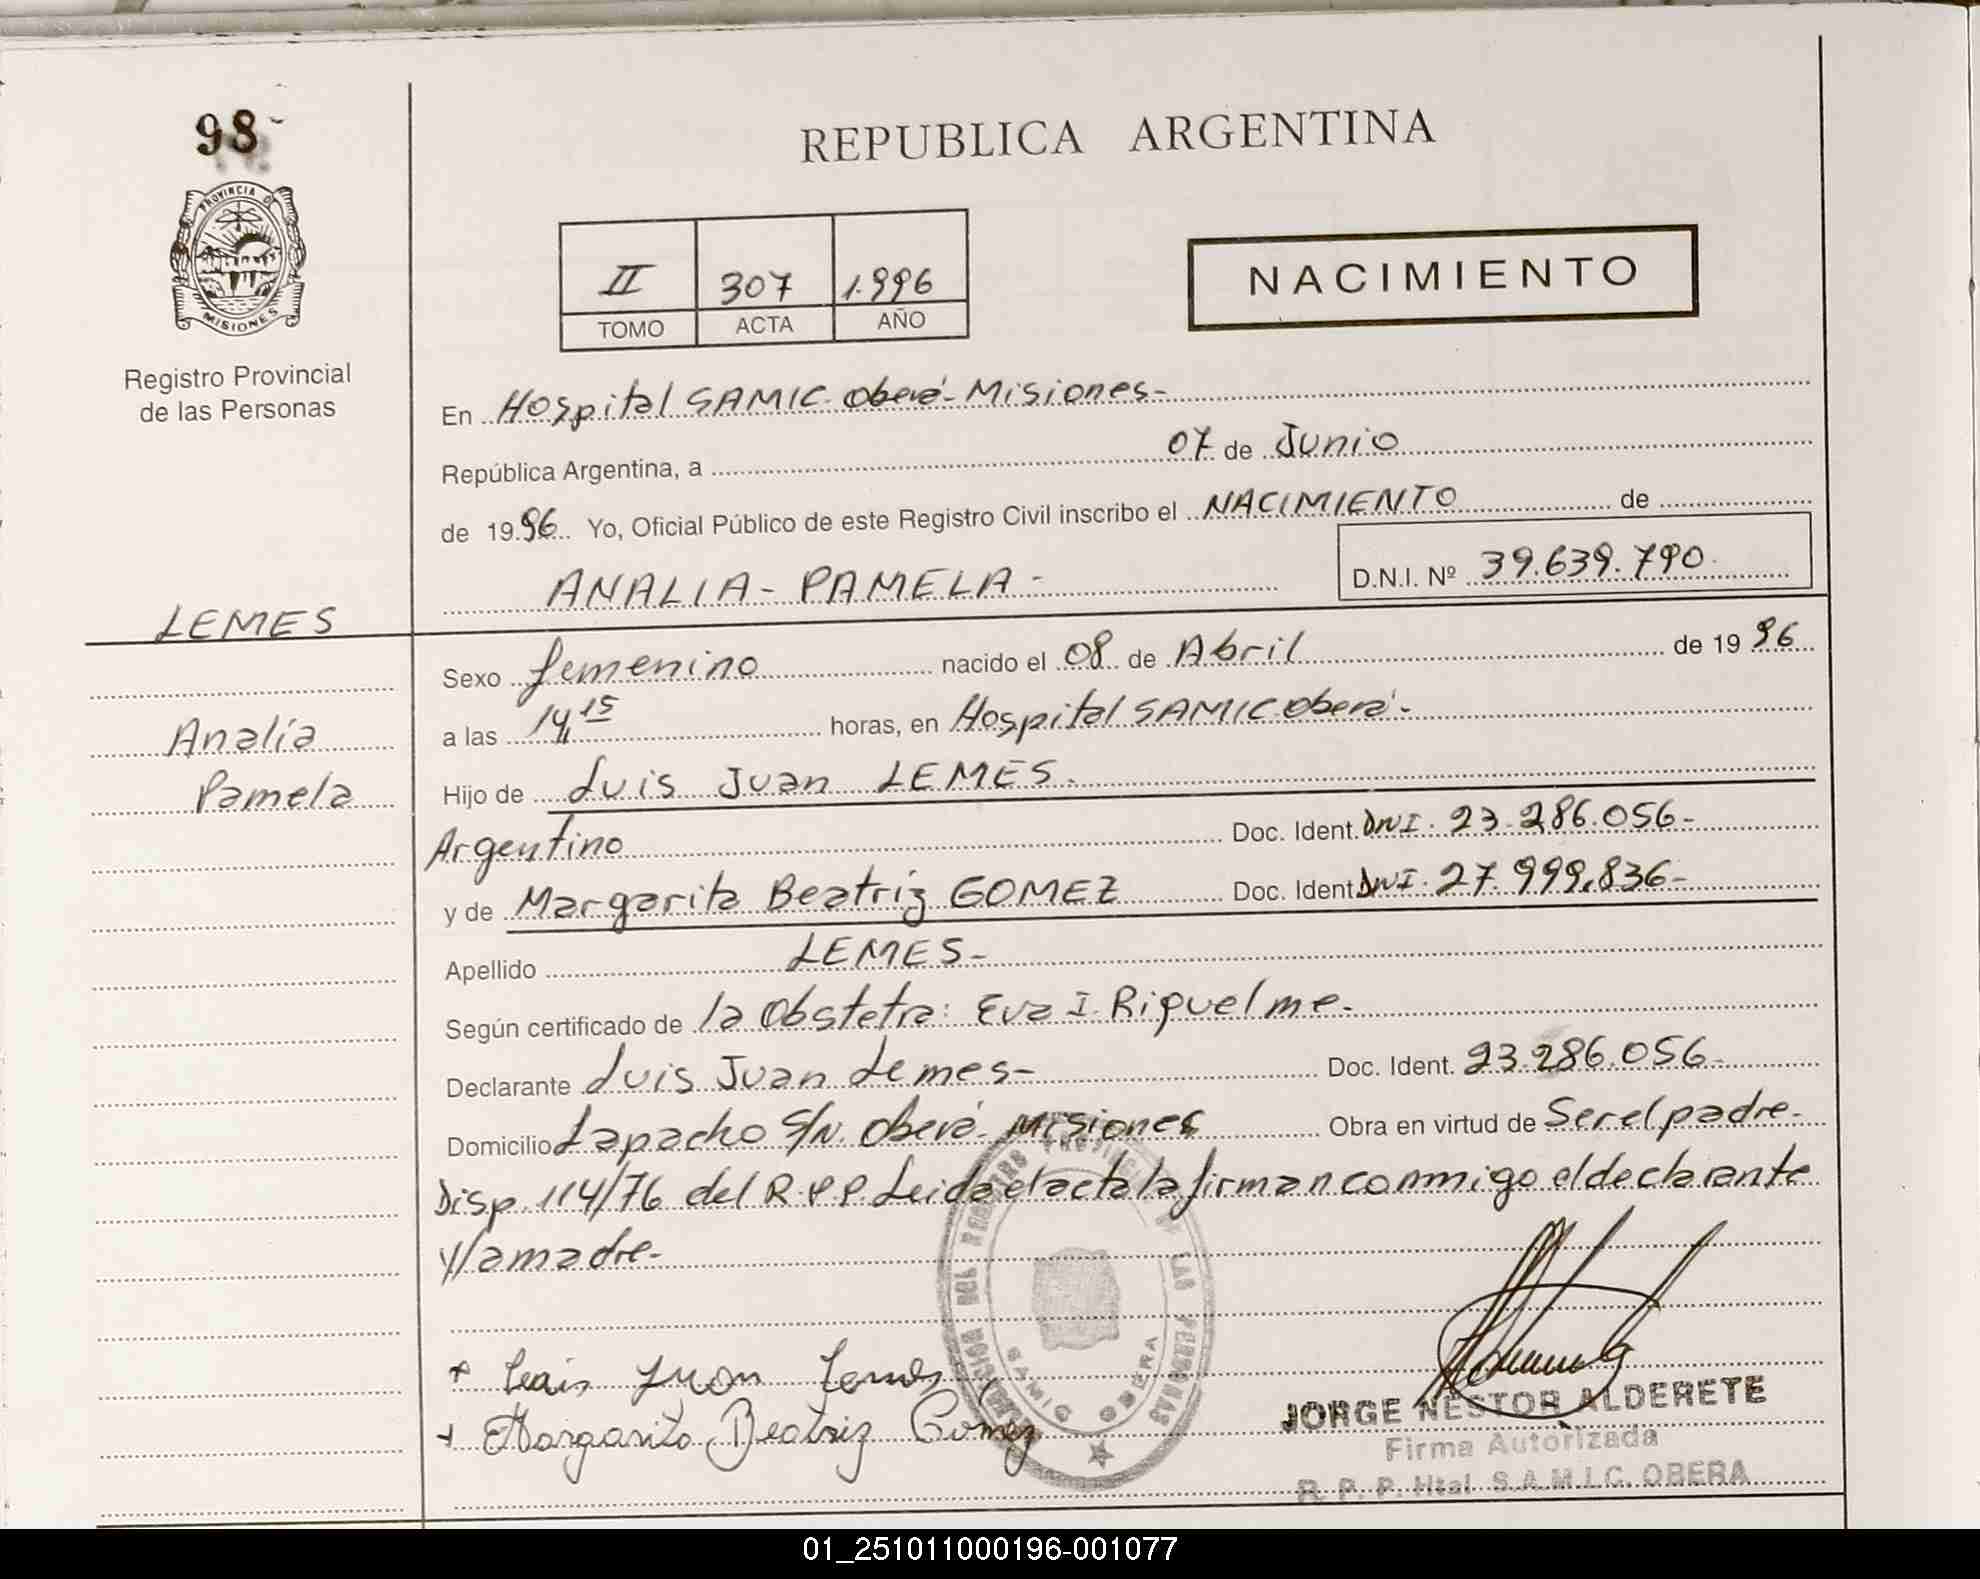 98
PROVINCIA DE
MISIONES
Registro Provincial
de las Personas
REPUBLICA ARGENTINA
II 307 1.996
TOMO ACTA AÑO
NACIMIENTO
En Hospital SAMIC Oberá-Misiones-
República Argentina, a 07 de Junio
de 1996 Yo, Oficial Público de este Registro Civil inscribo el NACIMIENTO de
ANALIA-PAMELA-
D.N.I. Nº 39.639.790.
LEMES
Analía
Pamela
Sexo femenino nacido el 08 de Abril de 1996
a las 14,15 horas, en Hospital SAMIC Oberá-
Hijo de Luis Juan LEMES-
Argentino Doc. Ident. DNI. 23.286.056-
y de Margarita Beatriz GOMEZ Doc. Ident. DNI. 27.999.836-
Apellido LEMES-
Según certificado de la Obstetra: Eva I. Riquelme-
Declarante Luis Juan Lemes- Doc. Ident. 23.286.056-
Domicilio Lapacho S/N. Oberá-Misiones Obra en virtud de Ser el padre-
Disp. 114/76 del R.P.P. Leida el acta la firman conmigo el declarante
y la madre-
+ Luis Juan Lemes
+ Margarita Beatriz Gomez
DEL REGISTRO PROVINCIAL DE LAS PERSONAS
SAMIC OBERA
JORGE NESTOR ALDERETE
Firma Autorizada
R. P. P. Htal. S.A.M.I.C. OBERA
01_251011000196-001077